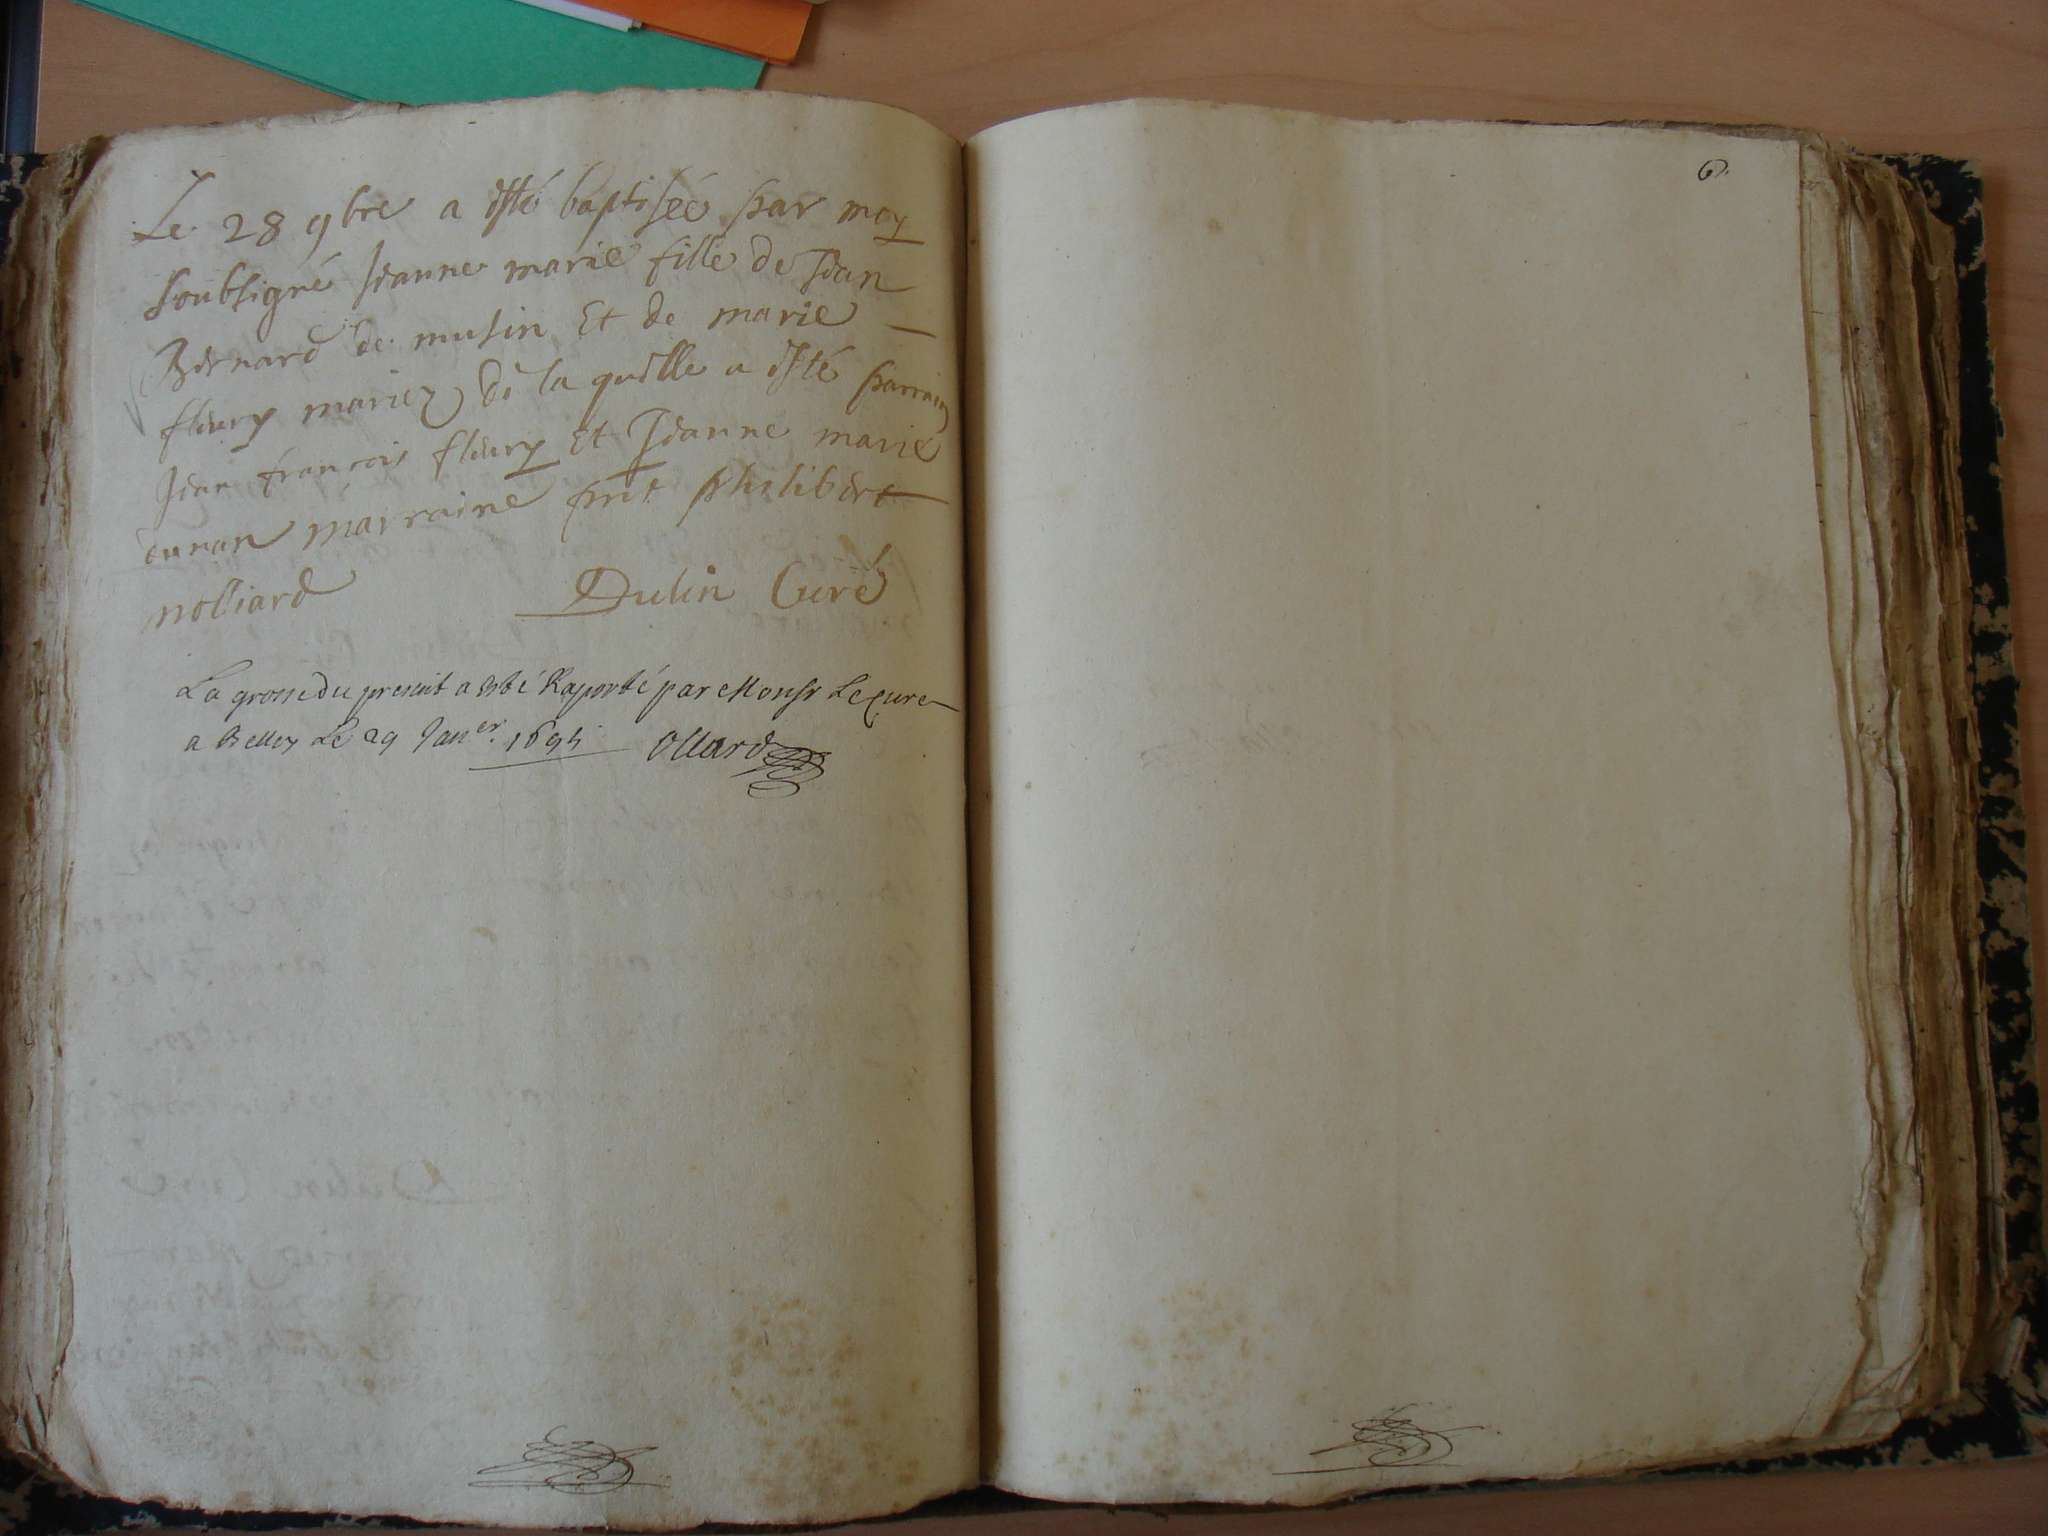 Le 28 9bre a esté baptisée par moy
soubsigné Jeanne marie fille de Jean
Bernard de musin Et de marie
fleury mariez de la quelle a esté parrain
Jean françois fleury Et Jeanne marie
dunan marraine pnt philibert
nolliard Dulin Curé
La grosse du present a esté Raporté par Monsr Le Cure
a Belley Le 29 Janer. 1695 Ollard
6.